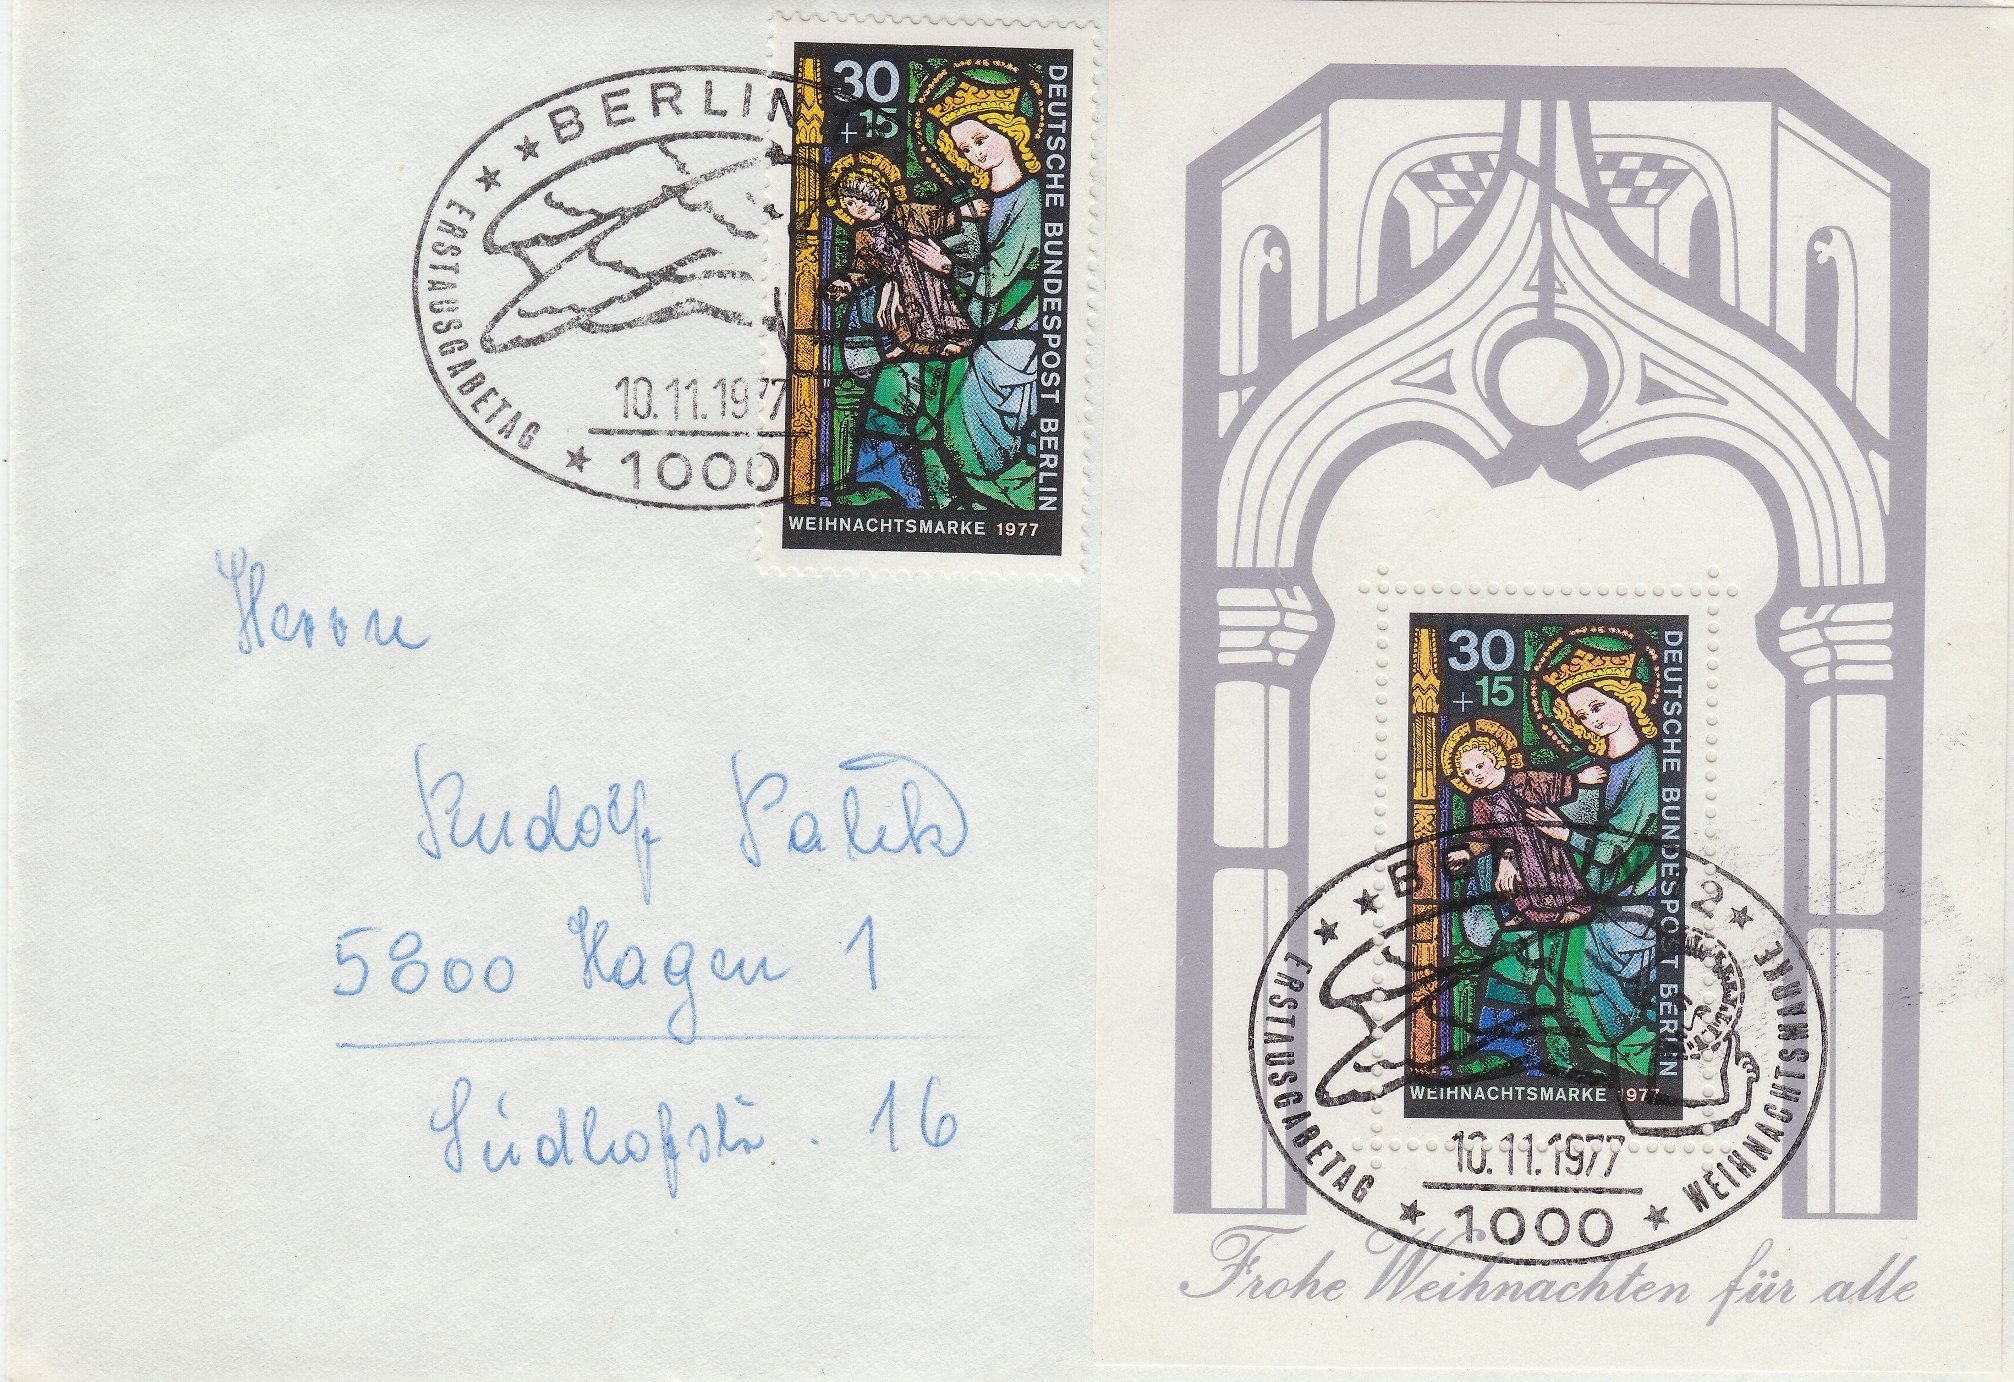 ★ ★ BERLIN
ERSTAUSGABETAG
10.11.1977
★ 1000
30
+15
DEUTSCHE BUNDESPOST BERLIN
WEIHNACHTSMARKE 1977
Herrn
Rudolf Patik
5800 Hagen 1
Südhofstr. 16
30
+15
DEUTSCHE BUNDESPOST BERLIN
WEIHNACHTSMARKE 1977
★ ★ BERLIN 12 ★
ERSTAUSGABETAG
WEIHNACHTSMARKE
10.11.1977
★ 1000 ★
Frohe Weihnachten für alle